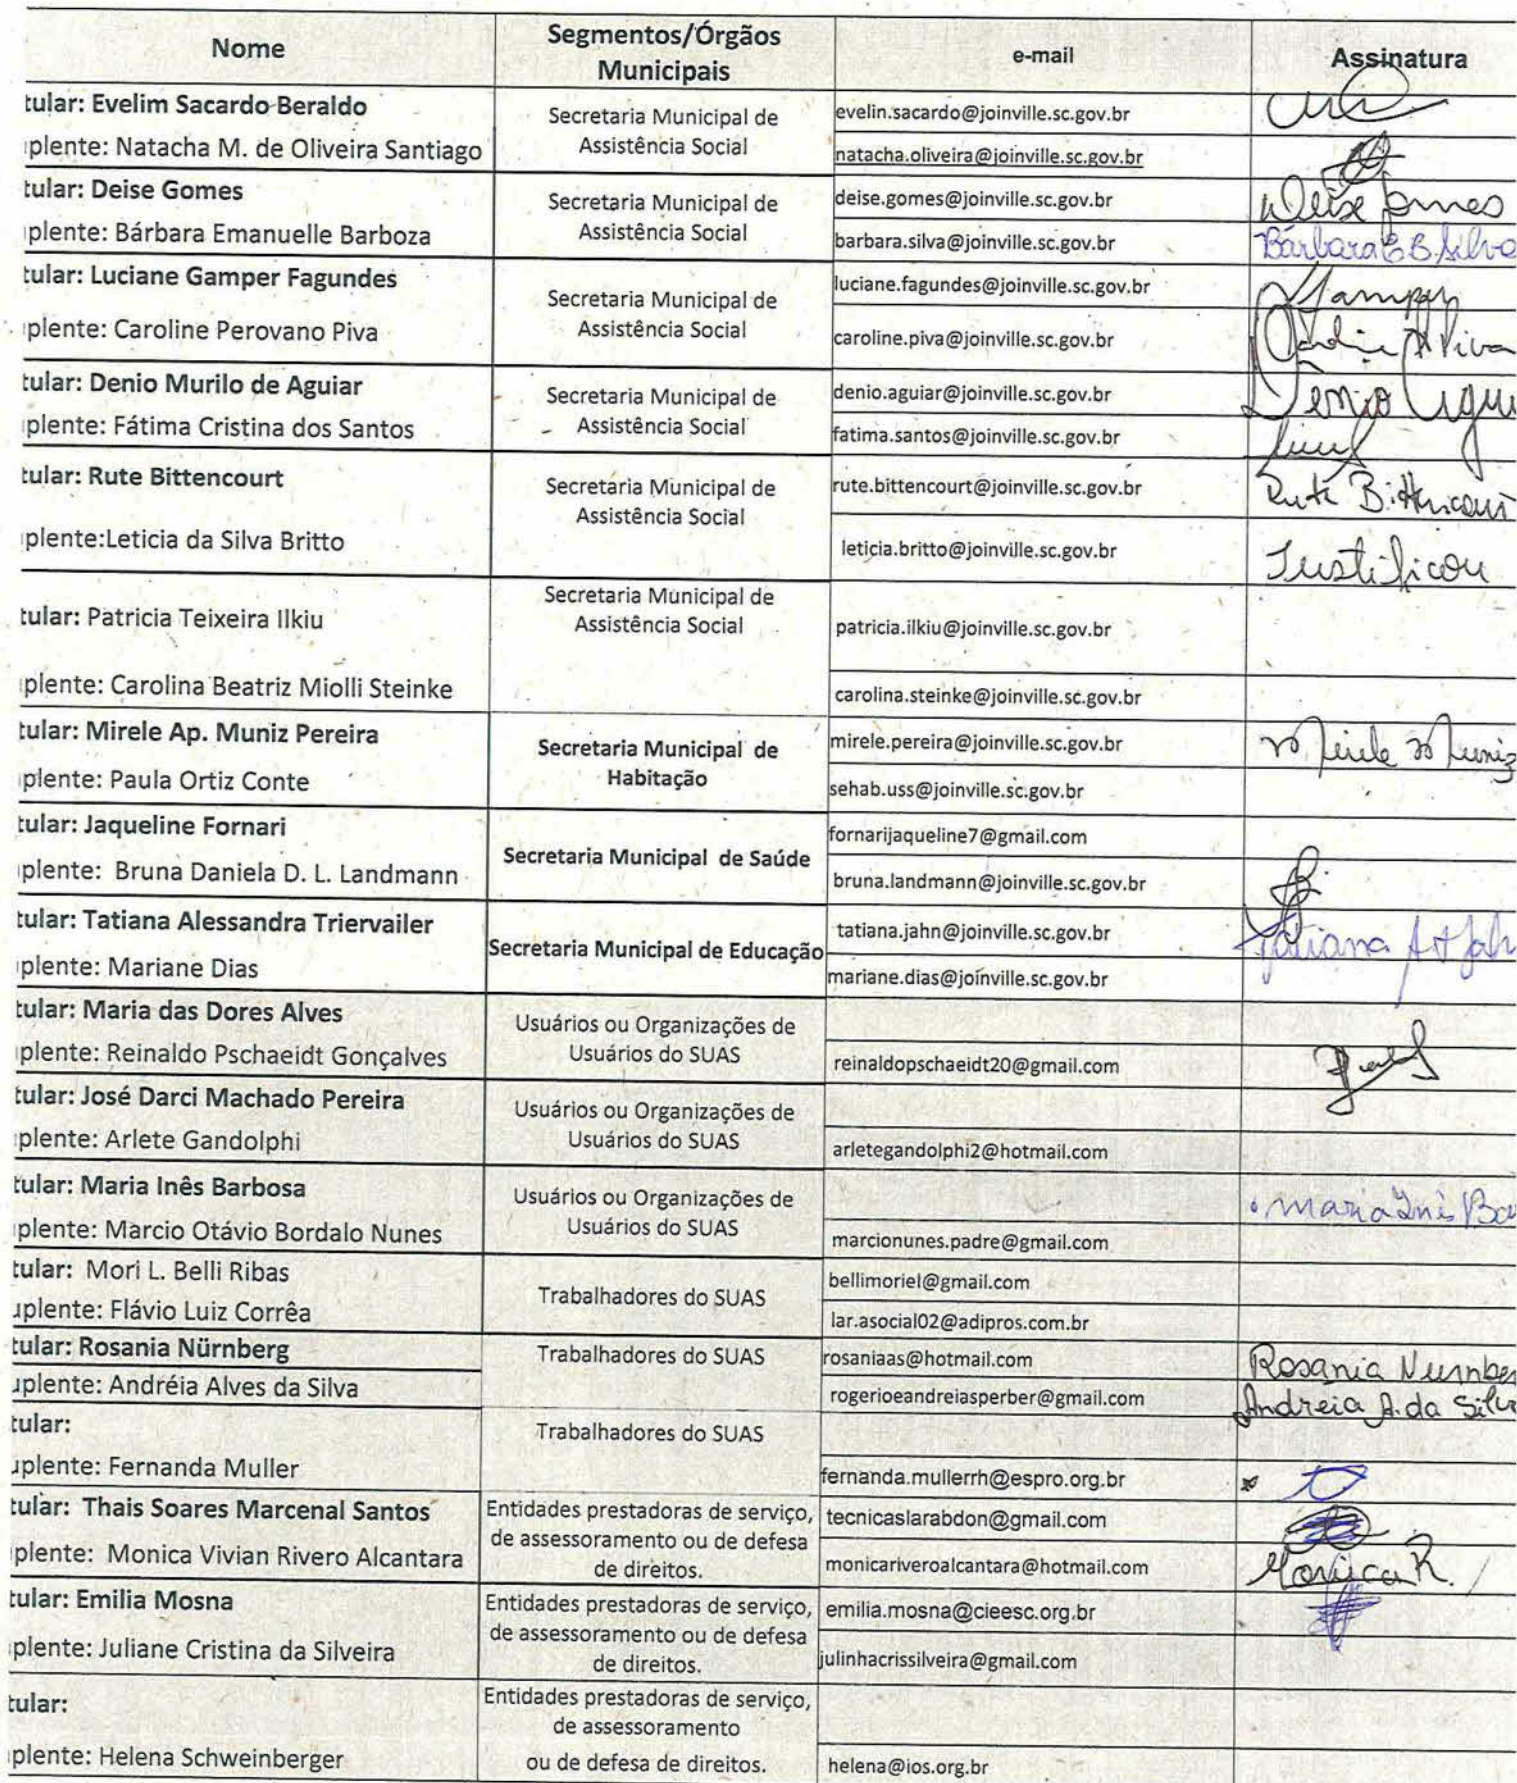 Nome Segmentos/Órgãos Municipais e-mail Assinatura
tular: Evelim Sacardo Beraldo Secretaria Municipal de Assistência Social evelin.sacardo@joinville.sc.gov.br
plente: Natacha M. de Oliveira Santiago natacha.oliveira@joinville.sc.gov.br
tular: Deise Gomes Secretaria Municipal de Assistência Social deise.gomes@joinville.sc.gov.br Deise Gomes
plente: Bárbara Emanuelle Barboza barbara.silva@joinville.sc.gov.br Bárbara E B. Silva
tular: Luciane Gamper Fagundes Secretaria Municipal de Assistência Social luciane.fagundes@joinville.sc.gov.br Gamper
plente: Caroline Perovano Piva caroline.piva@joinville.sc.gov.br Piva
tular: Denio Murilo de Aguiar Secretaria Municipal de Assistência Social denio.aguiar@joinville.sc.gov.br Denio Agui
plente: Fátima Cristina dos Santos fatima.santos@joinville.sc.gov.br
tular: Rute Bittencourt Secretaria Municipal de Assistência Social rute.bittencourt@joinville.sc.gov.br Rute Bittencourt
plente:Leticia da Silva Britto leticia.britto@joinville.sc.gov.br Justificou
tular: Patricia Teixeira Ilkiu Secretaria Municipal de Assistência Social patricia.ilkiu@joinville.sc.gov.br
plente: Carolina Beatriz Miolli Steinke carolina.steinke@joinville.sc.gov.br
tular: Mirele Ap. Muniz Pereira Secretaria Municipal de Habitação mirele.pereira@joinville.sc.gov.br Mirele Muniz
plente: Paula Ortiz Conte sehab.uss@joinville.sc.gov.br
tular: Jaqueline Fornari Secretaria Municipal de Saúde fornarijaqueline7@gmail.com
plente: Bruna Daniela D. L. Landmann bruna.landmann@joinville.sc.gov.br
tular: Tatiana Alessandra Triervailer Secretaria Municipal de Educação tatiana.jahn@joinville.sc.gov.br Tatiana A T Jah
plente: Mariane Dias mariane.dias@joinville.sc.gov.br
tular: Maria das Dores Alves Usuários ou Organizações de Usuários do SUAS
plente: Reinaldo Pschaeidt Gonçalves reinaldopschaeidt20@gmail.com
tular: José Darci Machado Pereira Usuários ou Organizações de Usuários do SUAS
plente: Arlete Gandolphi arletegandolphi2@hotmail.com
tular: Maria Inês Barbosa Usuários ou Organizações de Usuários do SUAS Maria Inês Bar
plente: Marcio Otávio Bordalo Nunes marcionunes.padre@gmail.com
tular: Mori L. Belli Ribas Trabalhadores do SUAS bellimoriel@gmail.com
uplente: Flávio Luiz Corrêa lar.asocial02@adipros.com.br
tular: Rosania Nürnberg Trabalhadores do SUAS rosaniaas@hotmail.com Rosania Nurnber
uplente: Andréia Alves da Silva rogerioeandreiasperber@gmail.com Andréia A. da Silva
tular: Trabalhadores do SUAS
uplente: Fernanda Muller fernanda.mullerrh@espro.org.br
tular: Thais Soares Marcenal Santos Entidades prestadoras de serviço, de assessoramento ou de defesa de direitos. tecnicaslarabdon@gmail.com
plente: Monica Vivian Rivero Alcantara monicariveroalcantara@hotmail.com Monica R.
tular: Emilia Mosna Entidades prestadoras de serviço, de assessoramento ou de defesa de direitos. emilia.mosna@cieesc.org.br
plente: Juliane Cristina da Silveira julinhacrissilveira@gmail.com
tular: Entidades prestadoras de serviço, de assessoramento ou de defesa de direitos.
plente: Helena Schweinberger helena@ios.org.br